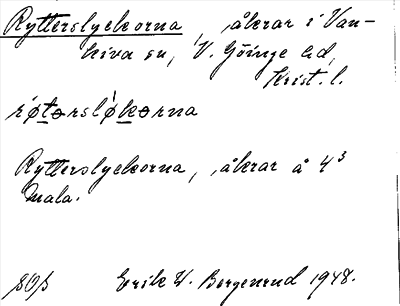 Ryttarslyckorna, åkrar i Van-
kiva sn, V. Göinge hd,
Krist. l.
røtarsløkorna
Ryttarslyckorna, åkrar å 4³
Mala.
Erik W. Bergenrud 1948.